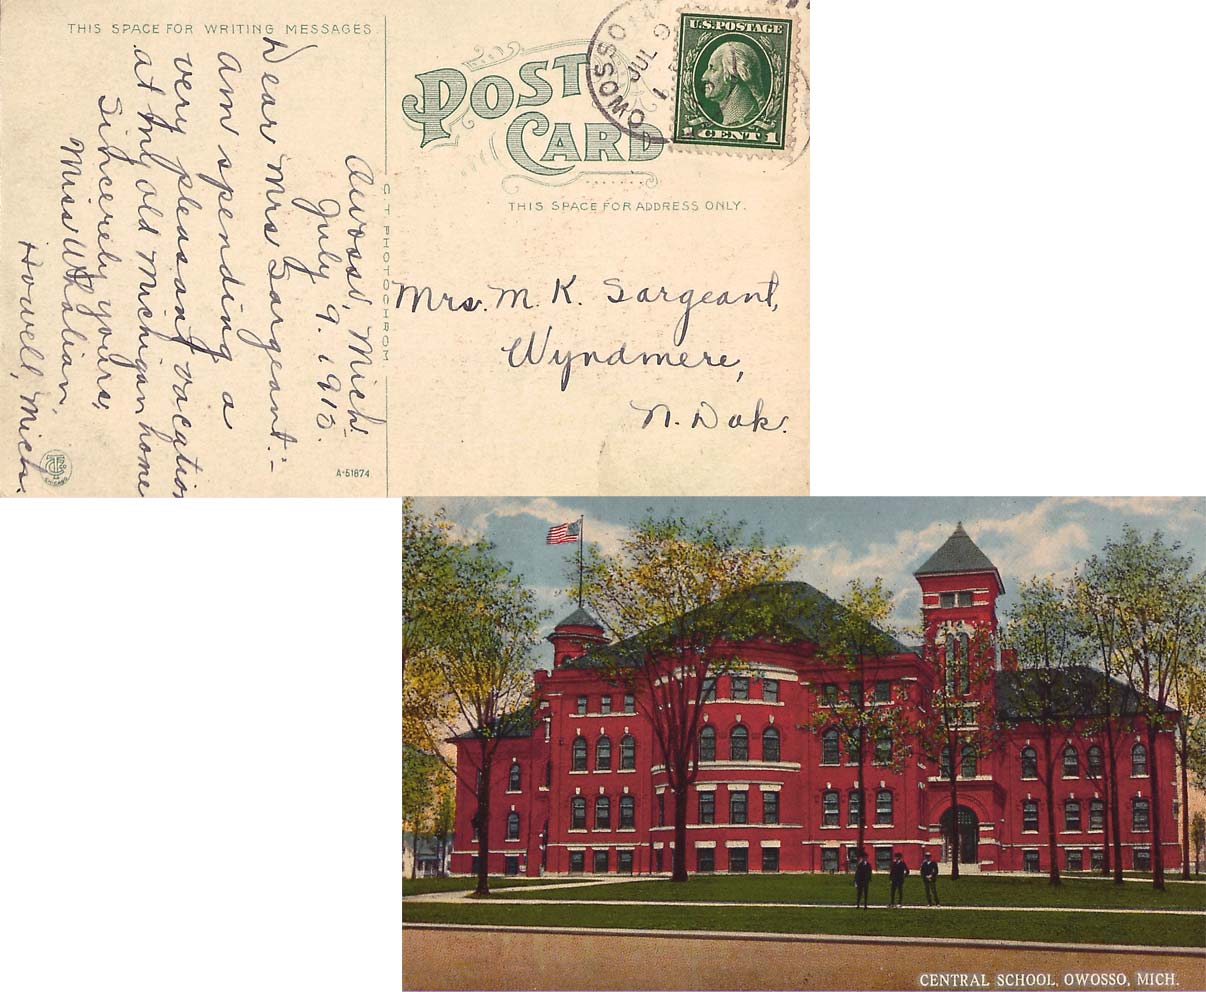 THIS SPACE FOR WRITING MESSAGES
Owosso, Mich.
July 9. 1913.
Dear Mrs Sargeant:-
am spending a
very pleasant vacation
at my old Michigan home
Sincerely yours,
Miss Whalian,
Howell, Mich.
C T PHOTOCHROM
A-51874
POST
CARD
THIS SPACE FOR ADDRESS ONLY.
OWOSSO
JUL 9
1
U.S.POSTAGE
1 CENT 1
Mrs. M. K. Sargeant,
Wyndmere,
N. Dak.
CENTRAL SCHOOL, OWOSSO, MICH.